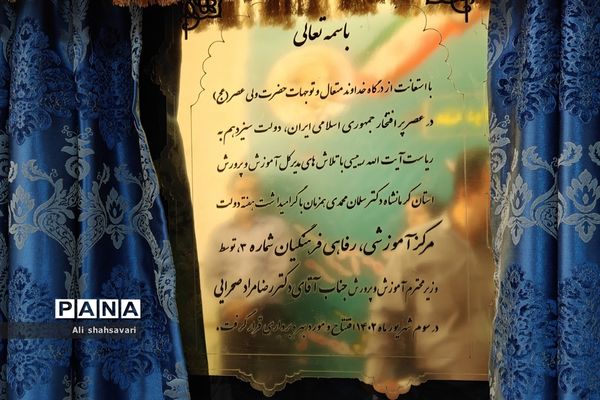 باسمه تعالی
با استعانت از درگاه خداوند متعال و توجهات حضرت ولی عصر (عج)
در عصر پر افتخار جمهوری اسلامی ایران، دولت سیزدهم به
ریاست آیت الله رییسی با تلاش های مدیرکل آموزش و پرورش
استان کرمانشاه دکتر سلمان محمدی همزمان با گرامیداشت هفته دولت
مرکز آموزشی، رفاهی فرهنگیان شماره ۳، توسط
وزیر محترم آموزش و پرورش جناب آقای دکتر رضا مراد صحرایی
در سوم شهریور ماه ۱۴۰۲ افتتاح و مورد بهره برداری قرار گرفت.
PANA
Ali shahsavari